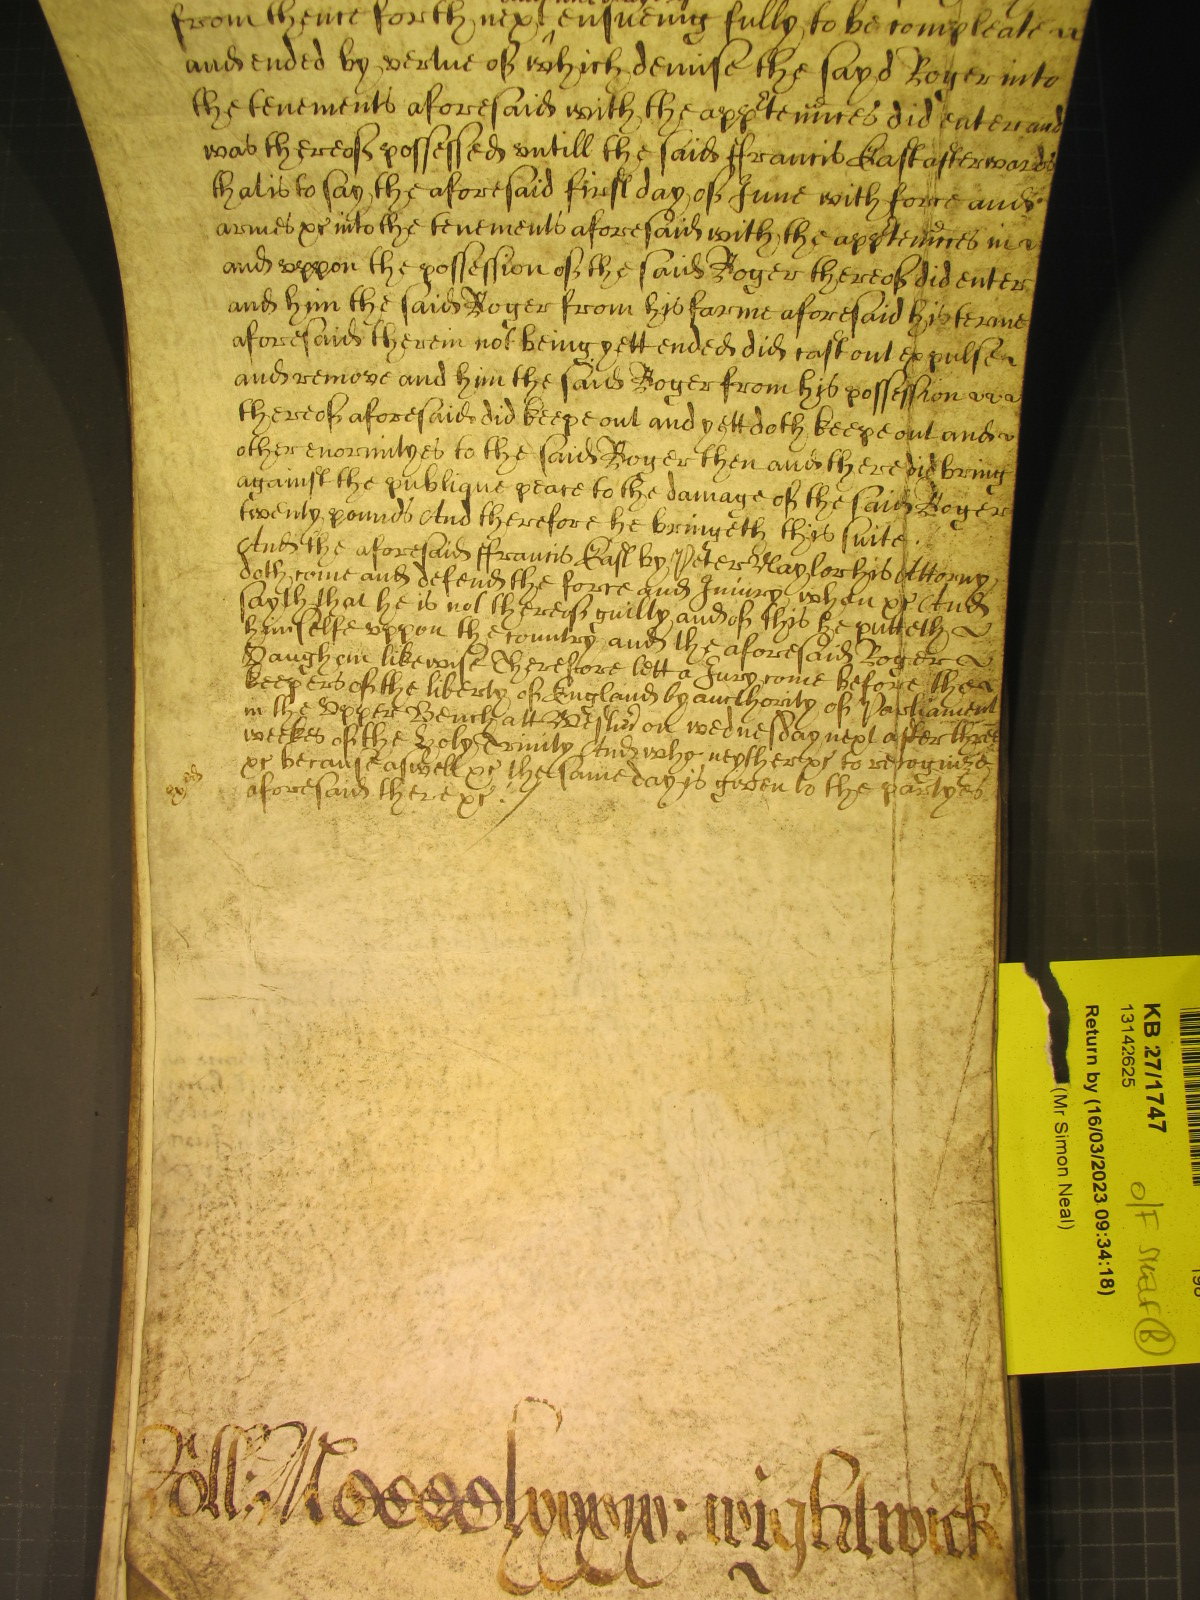 from thence forth next ensueing fully to be compleate
and ended by vertue of which demise the sayd Roger into
the tenements aforesaid with the apptennces did enter and
was thereof possessed untill the said ffrancis East afterwards
that is to say the aforesaid first day of June with force and
armes &c into the tenements aforesaid with the apptennces in
and uppon the possession of the said Roger thereof did enter
and him the said Roger from his farme aforesaid his terme
aforesaid therein not being yett ended did cast out expulse
and remove and him the said Roger from his possession
thereof aforesaid did keepe out and yett doth keepe out and
other enormityes to the said Roger then and there did bring
against the publique peace to the damage of the said Roger
twenty pounds And therefore he bringeth this suite.
And the aforesaid ffrancis East by Peter Naylor his Attorny
doth come and defend the force and Injury when &c And
sayth that he is not thereof guilty and of this he putteth
himselfe uppon the country and the aforesaid Roger
likewise Therefore lett a Jury come before the
keepers of the liberty of England by aucthority of Parliament
in the Upper Bench att Westm on wednesday next after three
weekes of the holy Trinity And who neyther &c to recognize
&c because aswell &c the same day is given to the partyes
aforesaid there &c.
Roll: wightwick
KB 27/1747
13142625
Return by (16/03/2023 09:34:18)
(Mr Simon Neal)
o/F